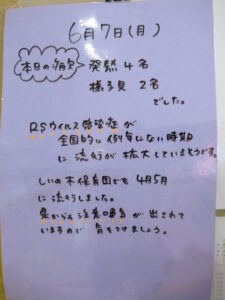 6月7日(月)
本日の病欠
発熱 4名
様子見 2名
でした。
RSウイルス感染症が
全国的に例年にない時期
に流行が拡大しているそうです。
しいの木保育園でも 4月5月
に流行しました。
県からも注意喚気が出されて
いますので 気をつけましょう。